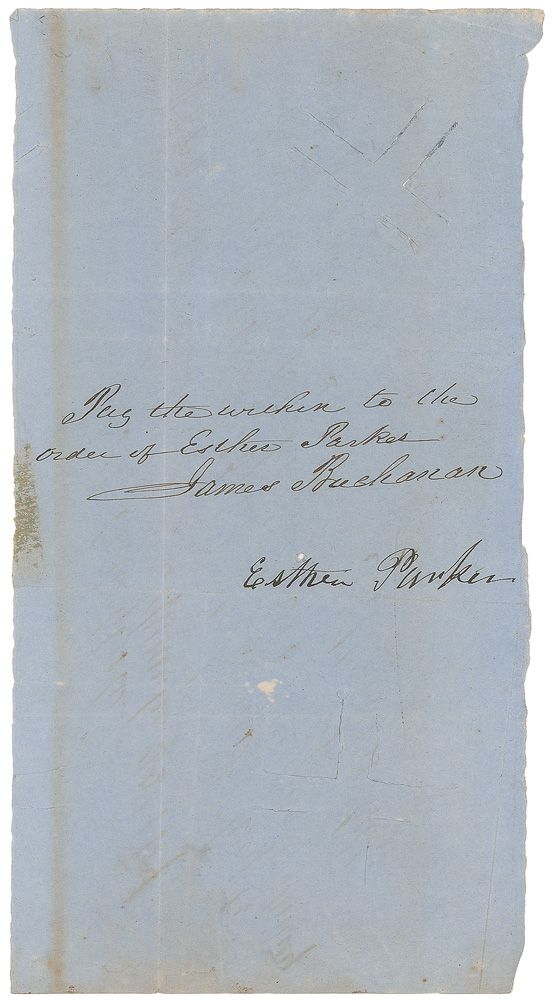 Pay the within to the
order of Esther Parker
James Buchanan
Esther Parker